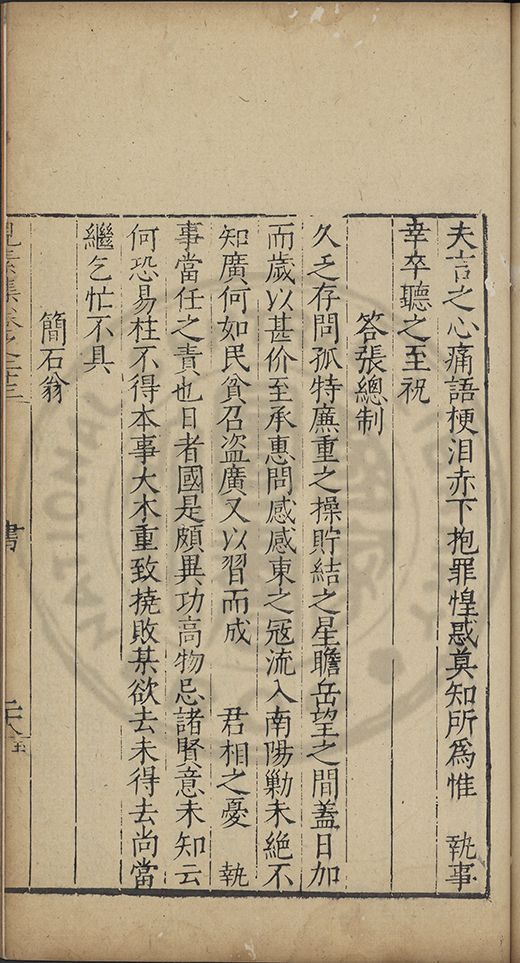 夫言之心痛語梗泪赤下抱罪惶惑莫知所為惟　執事
幸卒聽之至祝
答張總制
久乏存問孤特廉重之操貯結之星瞻岳望之間蓋日加
而歲以甚价至承惠問感感東之冦流入南陽勦未絕不
知廣何如民貧召盜廣又以習而成　君相之憂　執
事當任之責也日者國是頗異功高物忌諸賢意未知云
何恐易柱不得本事大木重致撓敗某欲去未得去尚當
繼乞忙不具
簡石翁
見素集卷之二十三
書